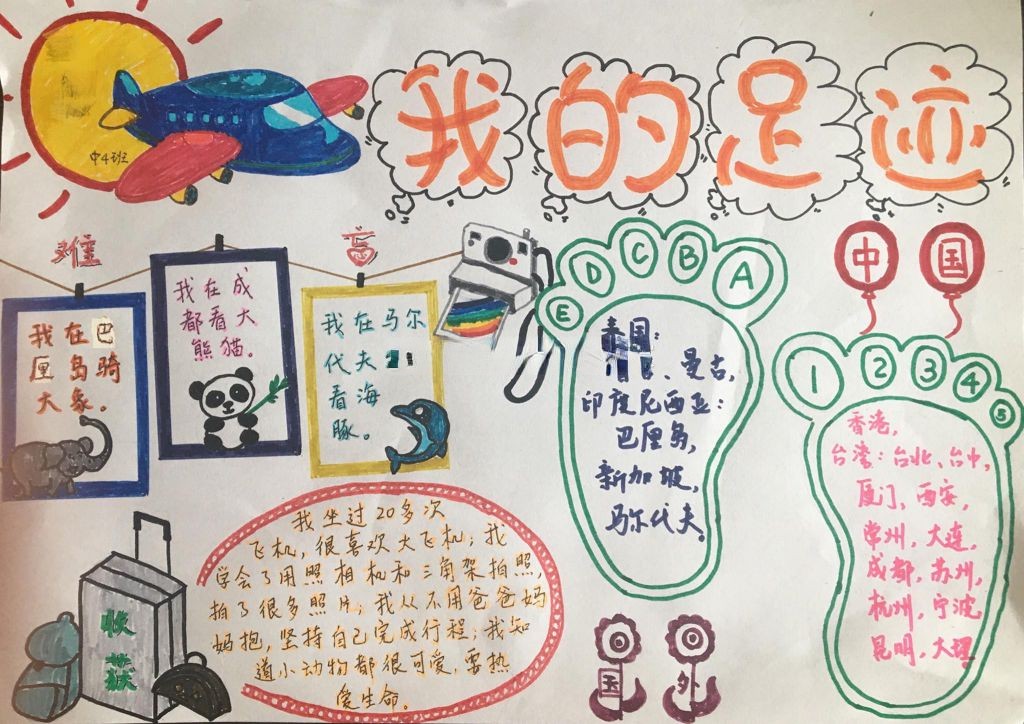 中4班
我的足迹
难忘
我在巴
厘岛骑
大象。
我在成
都看大
熊猫。
我在马尔
代夫
看海
豚。
E D C B A
泰国：
、曼谷，
印度尼西亚：
巴厘岛，
新加坡，
马尔代夫。
国外
中国
1 2 3 4 5
香港，
台湾：台北、台中，
厦门，西安，
常州，大连，
成都，苏州，
杭州，宁波，
昆明，大理
收
获
我坐过20多次
飞机，很喜欢大飞机；我
学会了用照相机和三角架拍照，
拍了很多照片；我从不用爸爸妈
妈抱，坚持自己完成行程；我知
道小动物都很可爱，要热
爱生命。